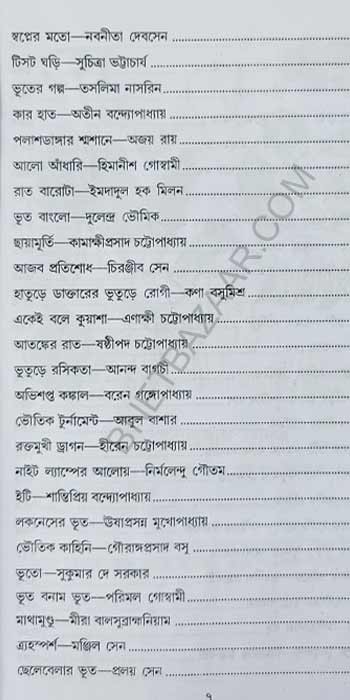 স্বপ্নের মতো—নবনীতা দেবসেন
টিসট ঘড়ি—সুচিত্রা ভট্টাচার্য
ভূতের গল্প—তসলিমা নাসরিন
কার হাত—অতীন বন্দ্যোপাধ্যায়
পলাশডাঙ্গার শ্মশানে—অজয় রায়
আলো আঁধারি—হিমানীশ গোস্বামী
রাত বারোটা—ইমদাদুল হক মিলন
ভূত বাংলো—দুলেন্দ্র ভৌমিক
ছায়ামূর্তি—কামাক্ষীপ্রসাদ চট্টোপাধ্যায়
আজব প্রতিশোধ—চিরঞ্জীব সেন
হাতুড়ে ডাক্তারের ভুতুড়ে রোগী—কণা বসুমিশ্র
একেই বলে কুয়াশা—এণাক্ষী চট্টোপাধ্যায়
আতঙ্কের রাত—ষষ্ঠীপদ চট্টোপাধ্যায়
ভুতুড়ে রসিকতা—আনন্দ বাগচী
অভিশপ্ত কঙ্কাল—বরেন গঙ্গোপাধ্যায়
ভৌতিক টুর্নামেন্ট—আবুল বাশার
রক্তমুখী ড্রাগন—হীরেন চট্টোপাধ্যায়
নাইট ল্যাম্পের আলোয়—নির্মলেন্দু গৌতম
ইটি—শান্তিপ্রিয় বন্দ্যোপাধ্যায়
লকনেসের ভূত—ঊষাপ্রসন্ন মুখোপাধ্যায়
ভৌতিক কাহিনি—গৌরাঙ্গপ্রসাদ বসু
ভূতো—সুকুমার দে সরকার
ভূত বনাম ভূত—পরিমল গোস্বামী
মাথামুণ্ডু—মীরা বালসুব্রামানিয়াম
ত্র্যহস্পর্শ—মঞ্জিল সেন
ছেলেবেলার ভূত—প্রলয় সেন
৭
BHETBAZAAR.COM